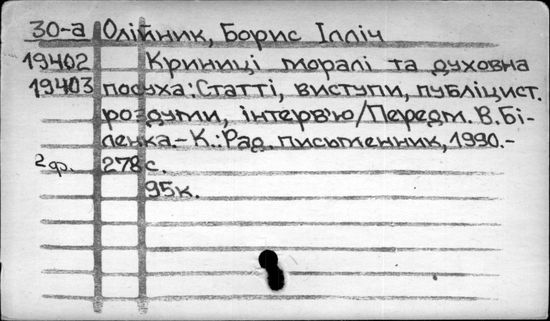 30-а Олійник, Борис Ілліч
19402 Криниці моралі та духовна
19403 посуха: Статті, виступи, публіцист.
роздуми, інтерв'ю/Передм. В.Бі-
ленка.- К.: Рад. письменник, 1990.-
2ф. 278с.
95к.